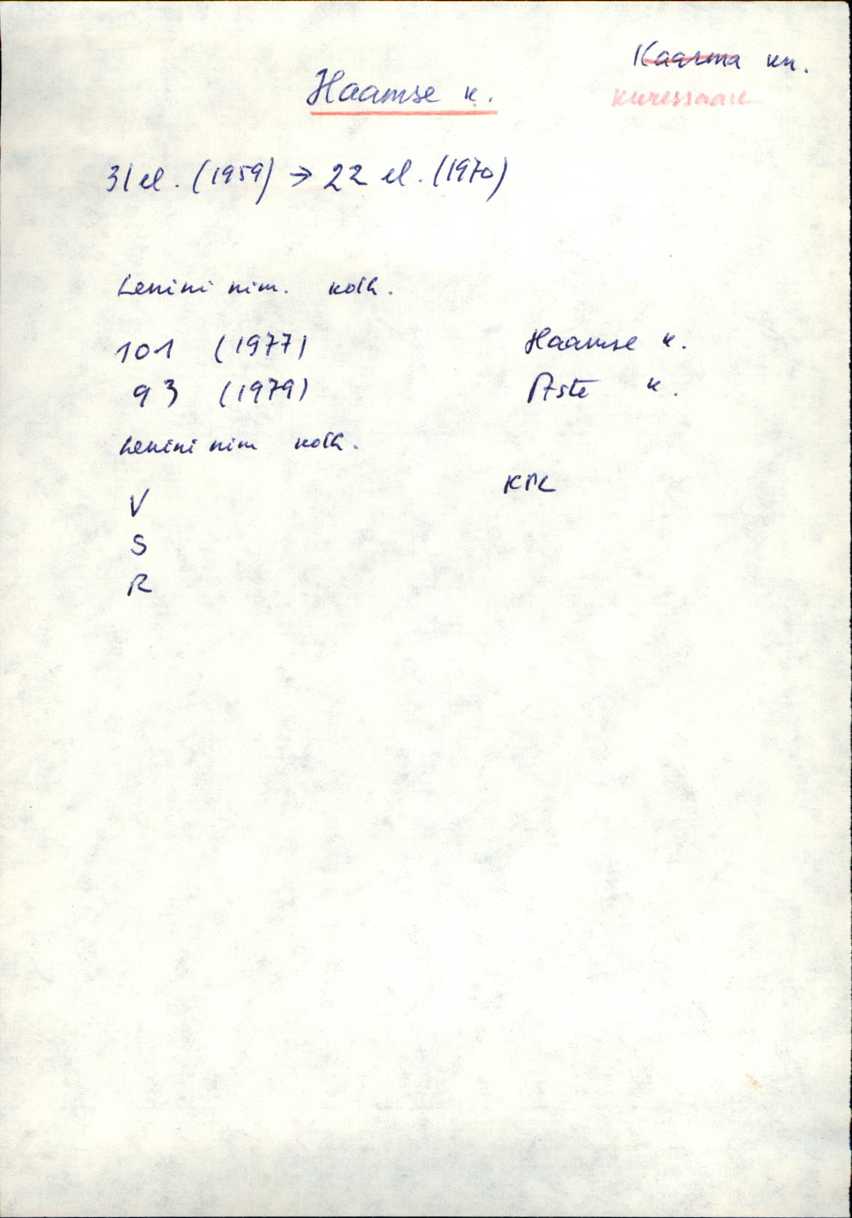 Kaarma kn.
Haamse k.
Kuressaare
31 el. (1959) → 22 el. (1970)
Lenini nim. kolh.
101 (1977) Haamse k.
93 (1979) Aste k.
Lenini nim kolh.
KPK
V
S
R